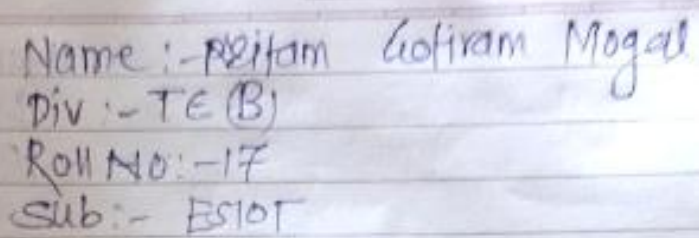 Name :- Pritam Gotiram Mogal
Div :- TE (B)
Roll No :- 17
Sub :- ESIOT